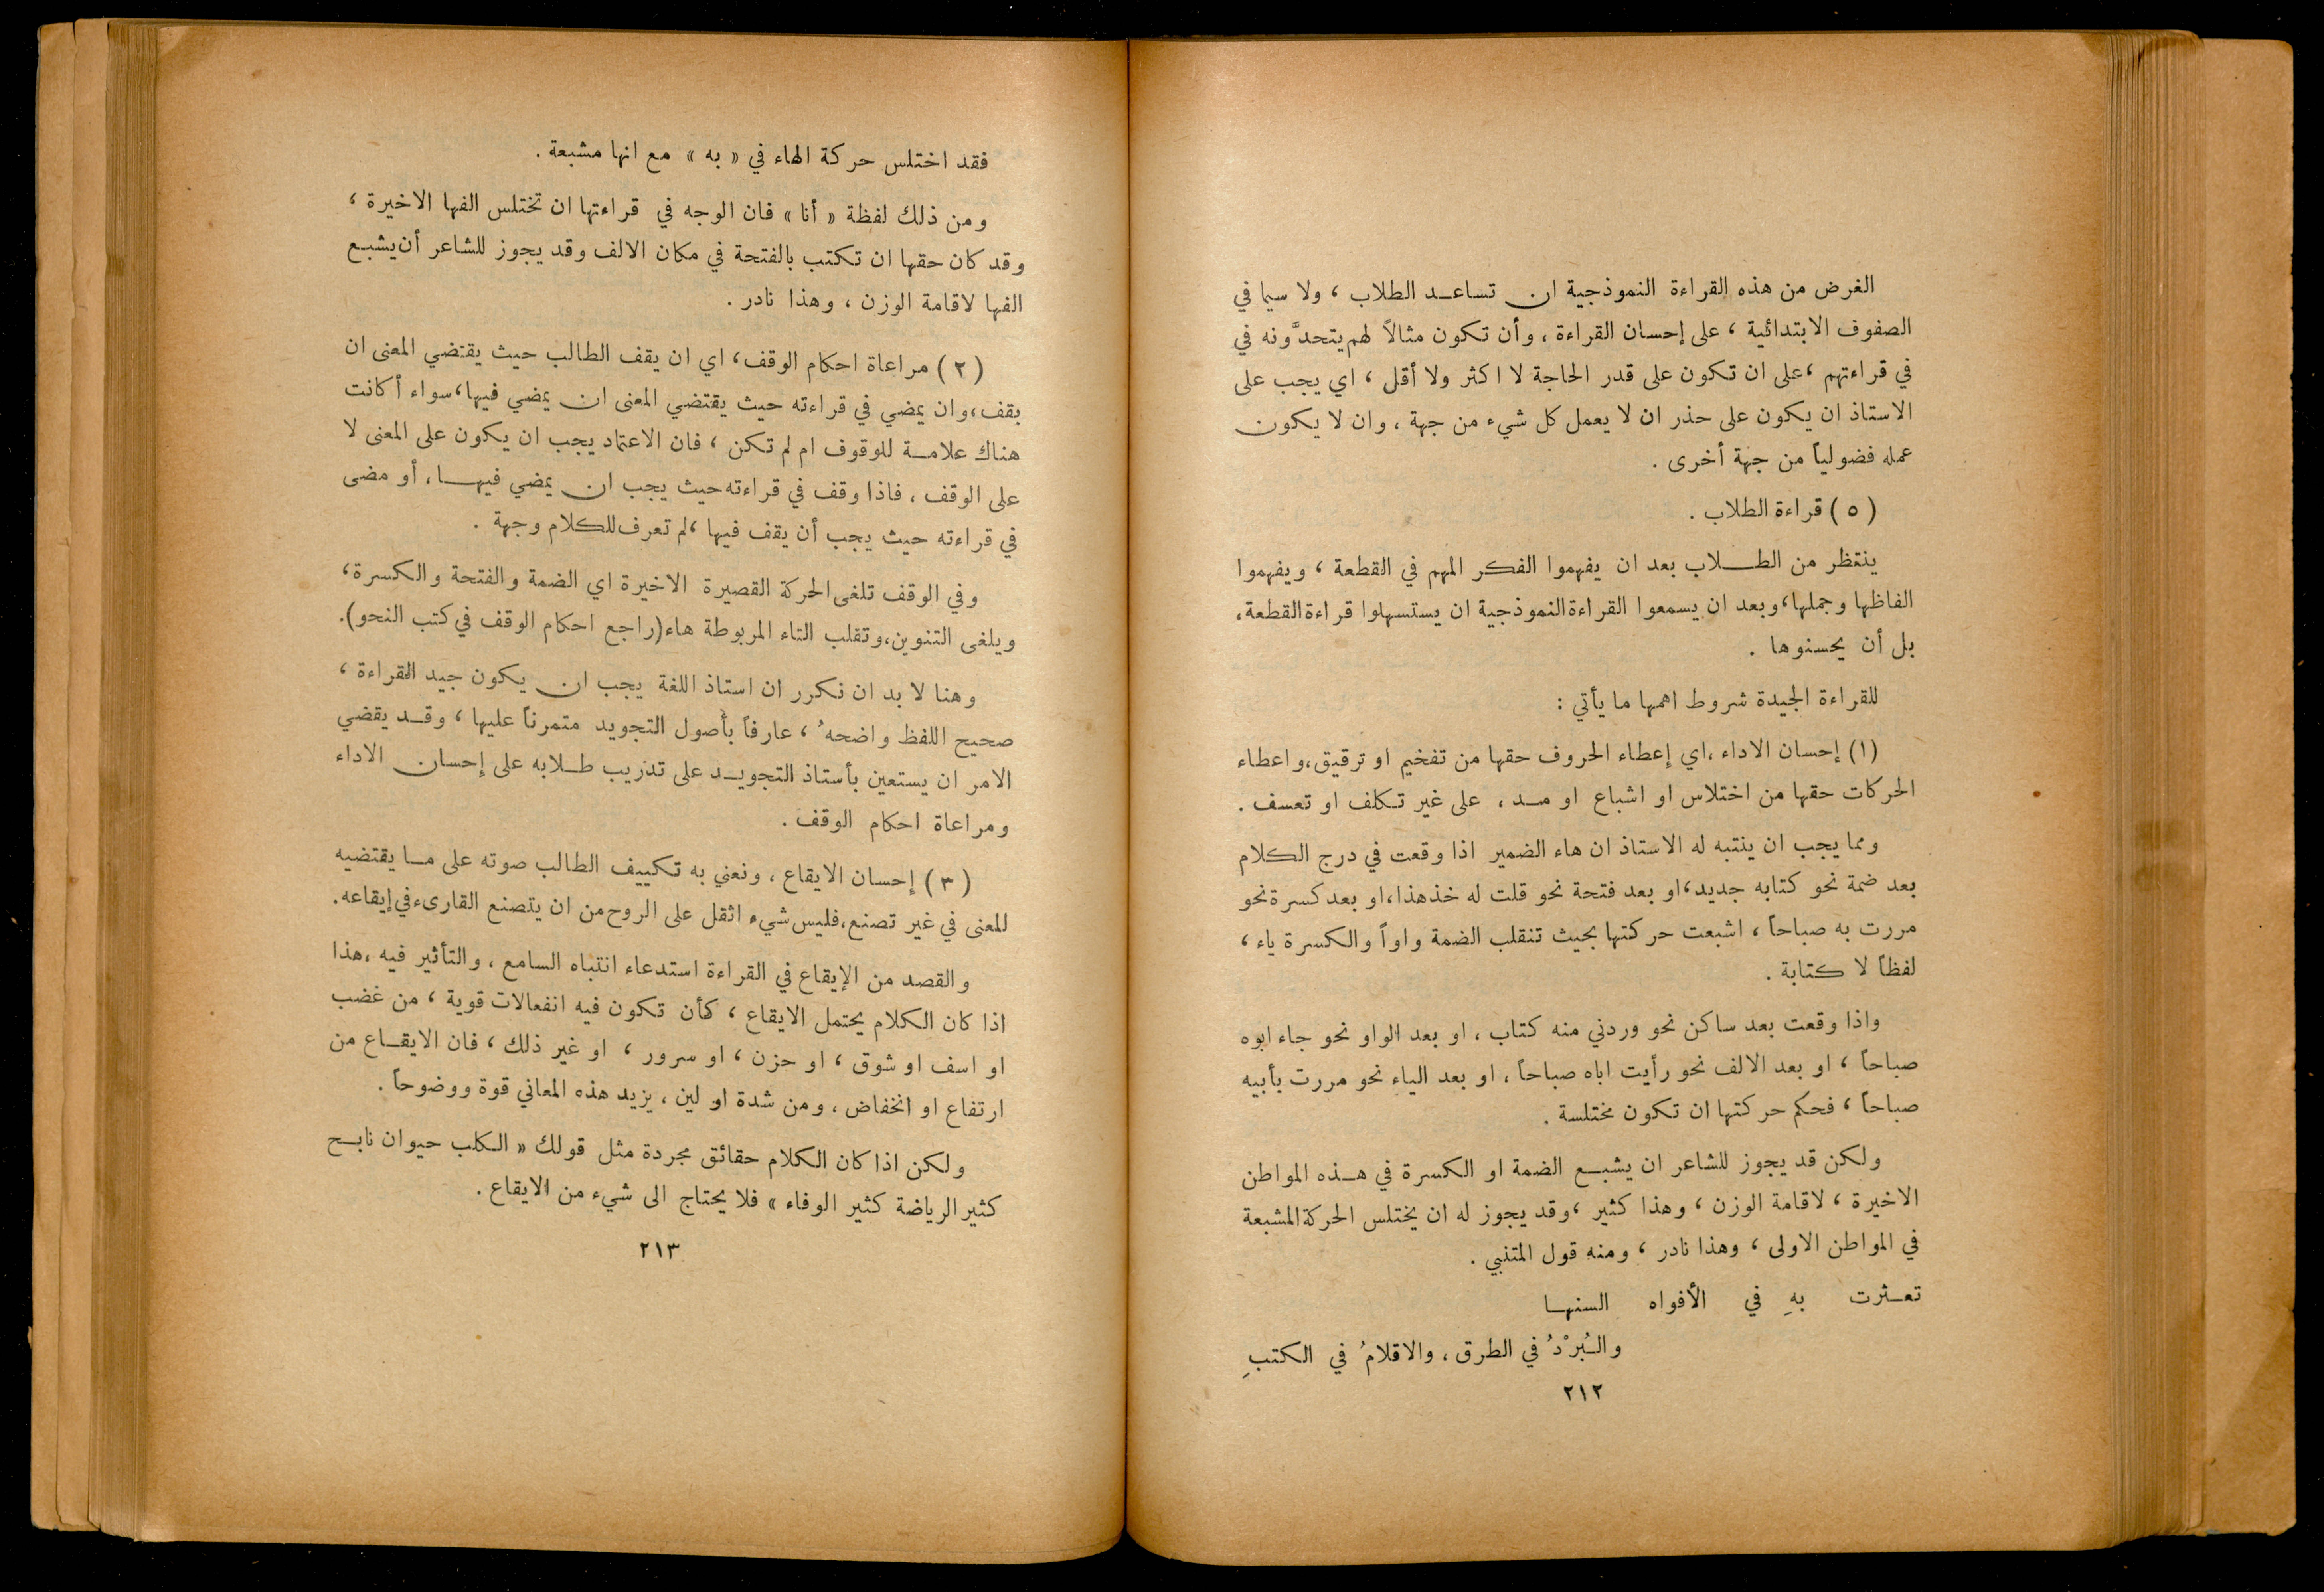 الغرض من هذه القراءة النموذجية ان تساعد الطلاب ، ولا سيما في
الصفوف الابتدائية ، على إحسان القراءة ، وأن تكون مثالاً لهم يتحدَّونه في
في قراءتهم ، على ان تكون على قدر الحاجة لا اكثر ولا أقل ، اي يجب على
الاستاذ ان يكون على حذر ان لا يعمل كل شيء من جهة ، وان لا يكون
عمله فضولياً من جهة أخرى .
( ٥ ) قراءة الطلاب .
ينتظر من الطلاب بعد ان يفهموا الفكر المهم في القطعة ، ويفهموا
الفاظها وجملها ، وبعد ان يسمعوا القراءة النموذجية ان يستسهلوا قراءة القطعة ،
بل أن يحسنوها .
للقراءة الجيدة شروط اهمها ما يأتي :
(١) إحسان الاداء ، اي إعطاء الحروف حقها من تفخيم او ترقيق ، واعطاء
الحركات حقها من اختلاس او اشباع او مد ، على غير تكلف او تعسف .
ومما يجب ان ينتبه له الاستاذ ان هاء الضمير اذا وقعت في درج الكلام
بعد ضمة نحو كتابه جديد ، او بعد فتحة نحو قلت له خذ هذا ، او بعد كسرة نحو
مررت به صباحاً ، اشبعت حركتها بحيث تنقلب الضمة واواً والكسرة ياء ،
لفظاً لا كتابة .
واذا وقعت بعد ساكن نحو وردني منه كتاب ، او بعد الواو نحو جاء ابوه
صباحاً ، او بعد الالف نحو رأيت اباه صباحاً ، او بعد الياء نحو مررت بأبيه
صباحاً ، فحكم حركتها ان تكون مختلسة .
ولكن قد يجوز للشاعر ان يشبع الضمة او الكسرة في هذه المواطن
الاخيرة ، لاقامة الوزن ، وهذا كثير ، وقد يجوز له ان يختلس الحركة المشبعة
في المواطن الاولى ، وهذا نادر ، ومنه قول المتنبي .
تعثرت بهِ في الأفواه السنها
والبُرْدُ في الطرق ، والاقلامُ في الكتبِ
٢١٢
فقد اختلس حركة الهاء في « به » مع انها مشبعة .
ومن ذلك لفظة « أنا » فان الوجه في قراءتها ان تختلس الفها الاخيرة ،
وقد كان حقها ان تكتب بالفتحة في مكان الالف وقد يجوز للشاعر أن يشبع
الفها لاقامة الوزن ، وهذا نادر .
( ٢ ) مراعاة احكام الوقف ، اي ان يقف الطالب حيث يقتضي المعنى ان
يقف ، وان يمضي في قراءته حيث يقتضي المعنى ان يمضي فيها ، سواء أكانت
هناك علامة للوقوف ام لم تكن ، فان الاعتماد يجب ان يكون على المعنى لا
على الوقف ، فاذا وقف في قراءته حيث يجب ان يمضي فيها ، أو مضى
في قراءته حيث يجب أن يقف فيها ، لم تعرف للكلام وجهة .
وفي الوقف تلغى الحركة القصيرة الاخيرة اي الضمة والفتحة والكسرة ،
ويلغى التنوين ، وتقلب التاء المربوطة هاء (راجع احكام الوقف في كتب النحو) .
وهنا لا بد ان نكرر ان استاذ اللغة يجب ان يكون جيد القراءة ،
صحيح اللفظ واضحهُ ، عارفاً بأصول التجويد متمرناً عليها ، وقد يقضي
الامر ان يستعين بأستاذ التجويد على تدريب طلابه على إحسان الاداء
ومراعاة احكام الوقف .
( ٣ ) إحسان الايقاع ، ونعني به تكييف الطالب صوته على ما يقتضيه
المعنى في غير تصنع ، فليس شيء اثقل على الروح من ان يتصنع القارىء في إيقاعه .
والقصد من الإيقاع في القراءة استدعاء انتباه السامع ، والتأثير فيه ، هذا
اذا كان الكلام يحتمل الايقاع ، كأن تكون فيه انفعالات قوية ، من غضب
او اسف او شوق ، او حزن ، او سرور ، او غير ذلك ، فان الايقاع من
ارتفاع او انخفاض ، ومن شدة او لين ، يزيد هذه المعاني قوة ووضوحاً .
ولكن اذا كان الكلام حقائق مجردة مثل قولك « الكلب حيوان نابح
كثير الرياضة كثير الوفاء » فلا يحتاج الى شيء من الايقاع .
٢١٣